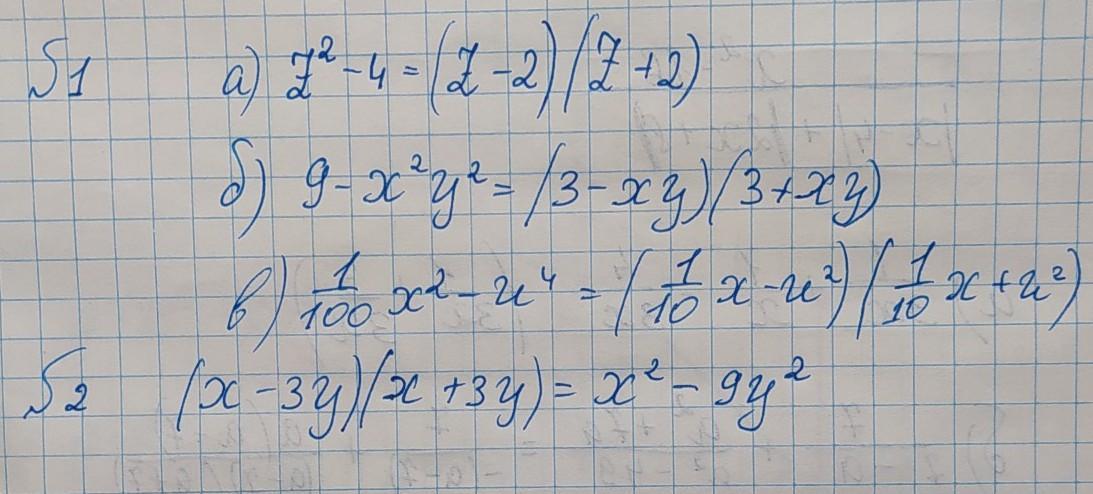 №1 а) z² - 4 = (z - 2)(z + 2)
б) 9 - x²y² = (3 - xy)(3 + xy)
в) 1/100 x² - u⁴ = (1/10 x - u²)(1/10 x + u²)
№2 (x - 3y)(x + 3y) = x² - 9y²